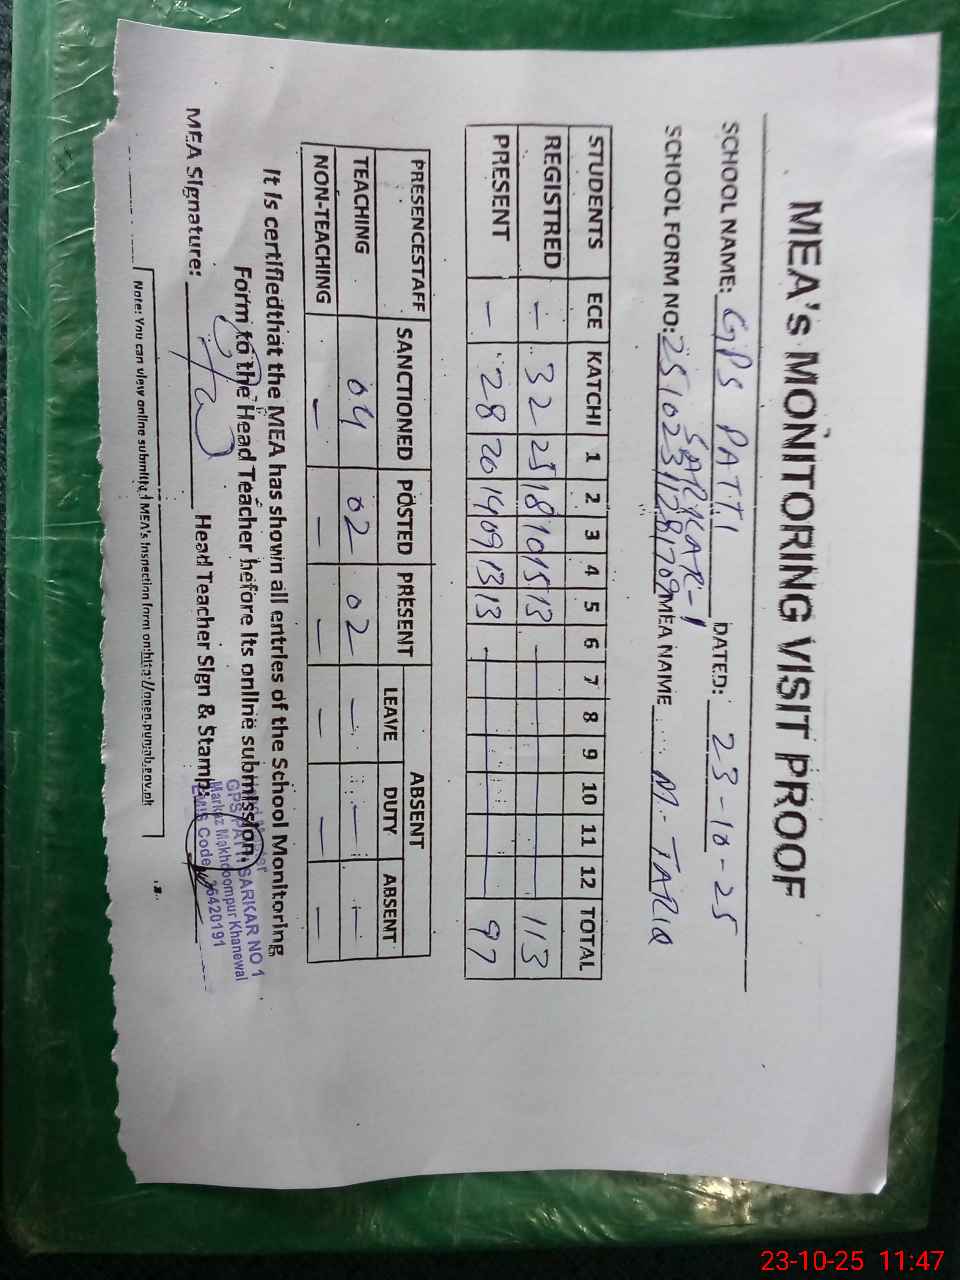 MEA's MONITORING VISIT PROOF
SCHOOL NAME: GPS PATTI SARKAR-1 DATED: 23-10-25
SCHOOL FORM NO: MEA NAME M. TARIQ
STUDENTS ECE KATCHI 1 2 3 4 5 6 7 8 9 10 11 12 TOTAL
REGISTRED — 32 25 18 10 15 13 — 113
PRESENT — 28 20 14 09 13 13 — 97
PRESENCESTAFF SANCTIONED POSTED PRESENT ABSENT
LEAVE DUTY ABSENT
TEACHING 04 02 02 — — —
NON-TEACHING — — — — — —
It is certifiedthat the MEA has shown all entries of the School Monitoring
Form to the Head Teacher before its online submission.
MEA Signature: Head Teacher Sign & Stamp:
GPS PATTI SARKAR NO 1
Markaz Makhdoompur Khanewal
EMIS Code 36420191
Note: You can view online submitted MEA's Inspection form on:http://open.punjab.gov.pk
23-10-25 11:47